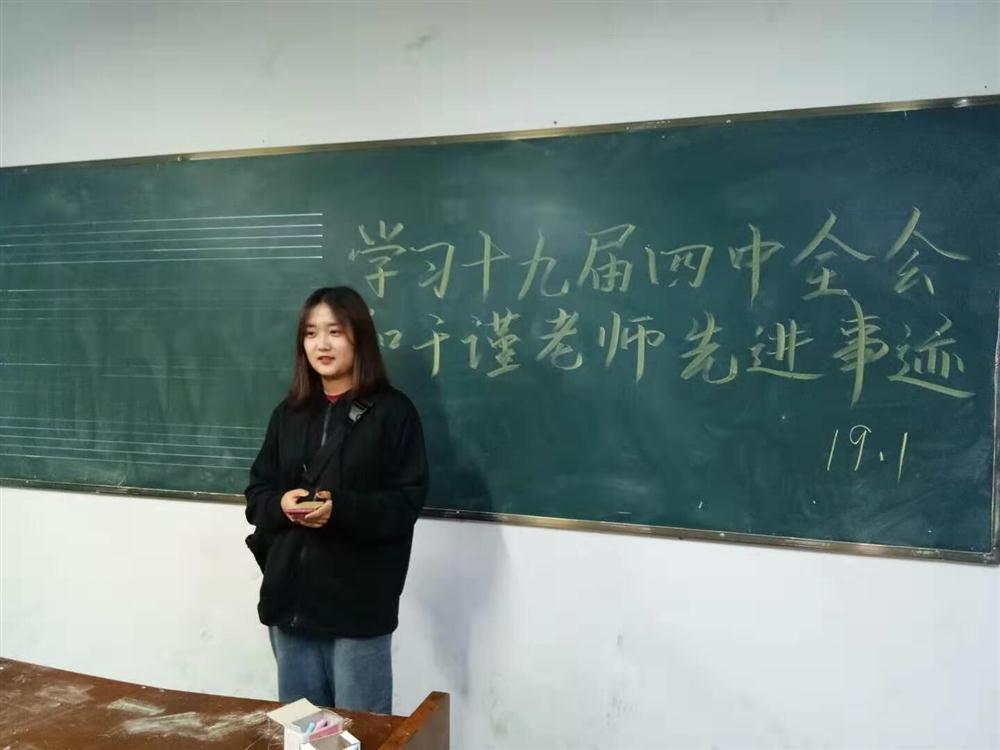 学习十九届四中全会
和于谨老师先进事迹
19.1